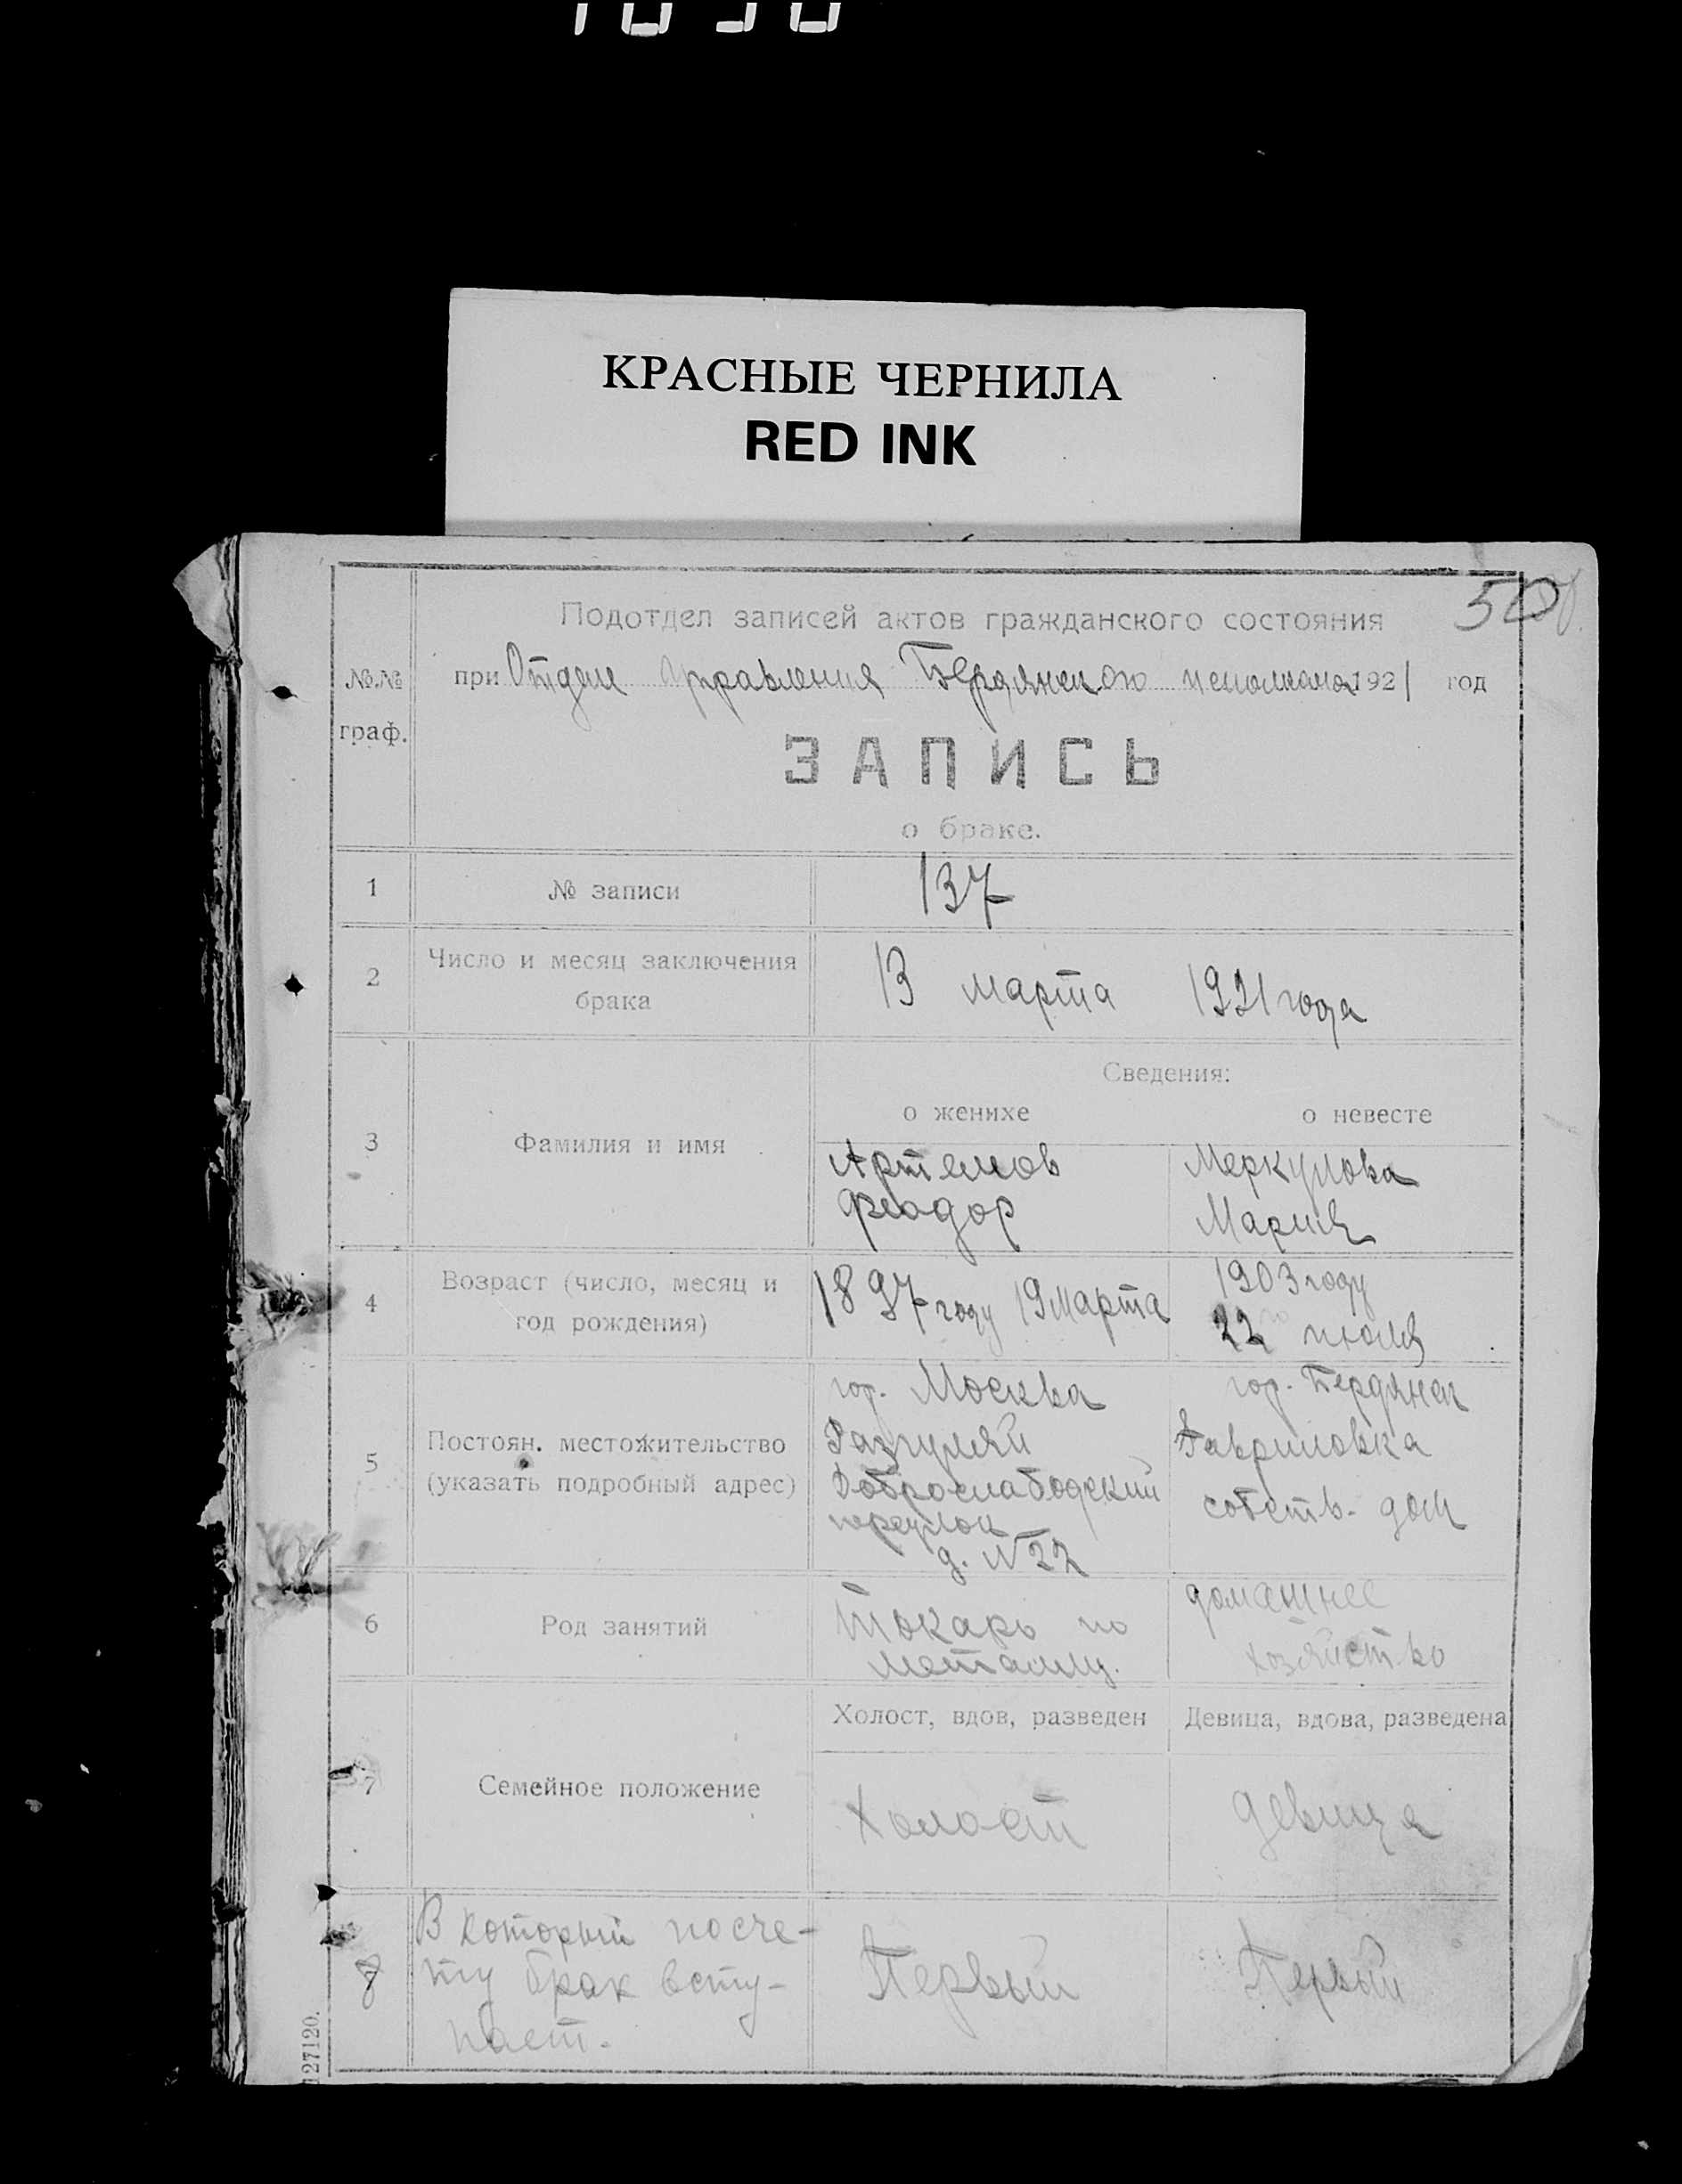 КРАСНЫЕ ЧЕРНИЛА
RED INK
50
Подотдел записей актов гражданского состояния
№№ граф.
при Отделе Управления Бердянского исполкома 1921 год
ЗАПИСЬ
о браке.
1 № записи 137
2 Число и месяц заключения брака 13 марта 1921 года
Сведения:
о женихе о невесте
3 Фамилия и имя
Артемов Меркулова
Феодор Мария
4 Возраст (число, месяц и год рождения)
1897 году 19 марта
1903 году
22 июля
5 Постоян. местожительство
(указать подробный адрес)
гор. Москва
Разгуляй
Доброслабодский
переулок
д. №22
гор. Бердянск
Гавриловка
собств. дом
6 Род занятий
Токарь по
металлу.
домашнее
хозяйство
Холост, вдов, разведен Девица, вдова, разведена
7 Семейное положение
Холост девица
8 В который по сче-
ту брак всту-
пает.
Первый Первый
127120.